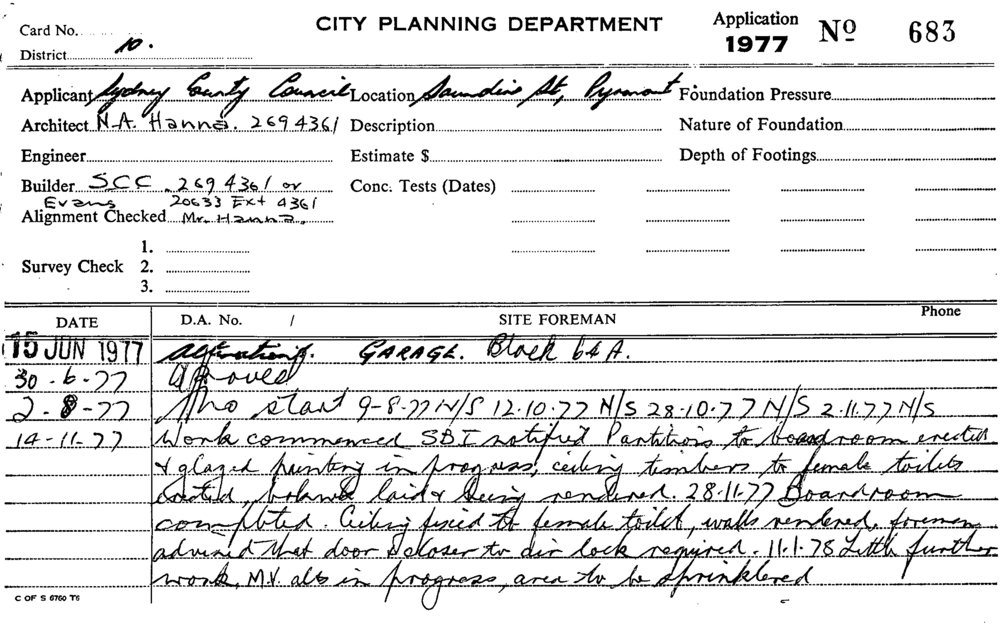 CITY PLANNING DEPARTMENT
Application 1977 Nº 683
Card No.
District 10.
Applicant Sydney County Council Location Saunders St, Pyrmont Foundation Pressure
Architect N.A. Hanna. 269 4361 Description Nature of Foundation
Engineer Estimate $ Depth of Footings
Builder SCC. 269 4361 or Conc. Tests (Dates)
Evans 20633 Ext 4361
Alignment Checked Mr. Hanna.
1.
Survey Check 2.
3.
DATE D.A. No. / SITE FOREMAN Phone
15 JUN 1977 Alterations. GARAGE. Block 64A.
30-6-77 Approved
2-8-77 No start 9-8-77 N/S 12.10.77 N/S 28.10.77 N/S 2.11.77 N/S
14-11-77 Work commenced SBI notified Partitions to boardroom erected
& glazed painting in progress, ceiling timbers to female toilets
erected, laid & being rendered. 28.11.77 Boardroom
completed. Ceiling fixed to female toilet, walls rendered, foreman
advised that door & closer to air lock required. 11.1.78 Little further
work, M.V. alts in progress, area to be sprinklered
C OF S 6760 T6